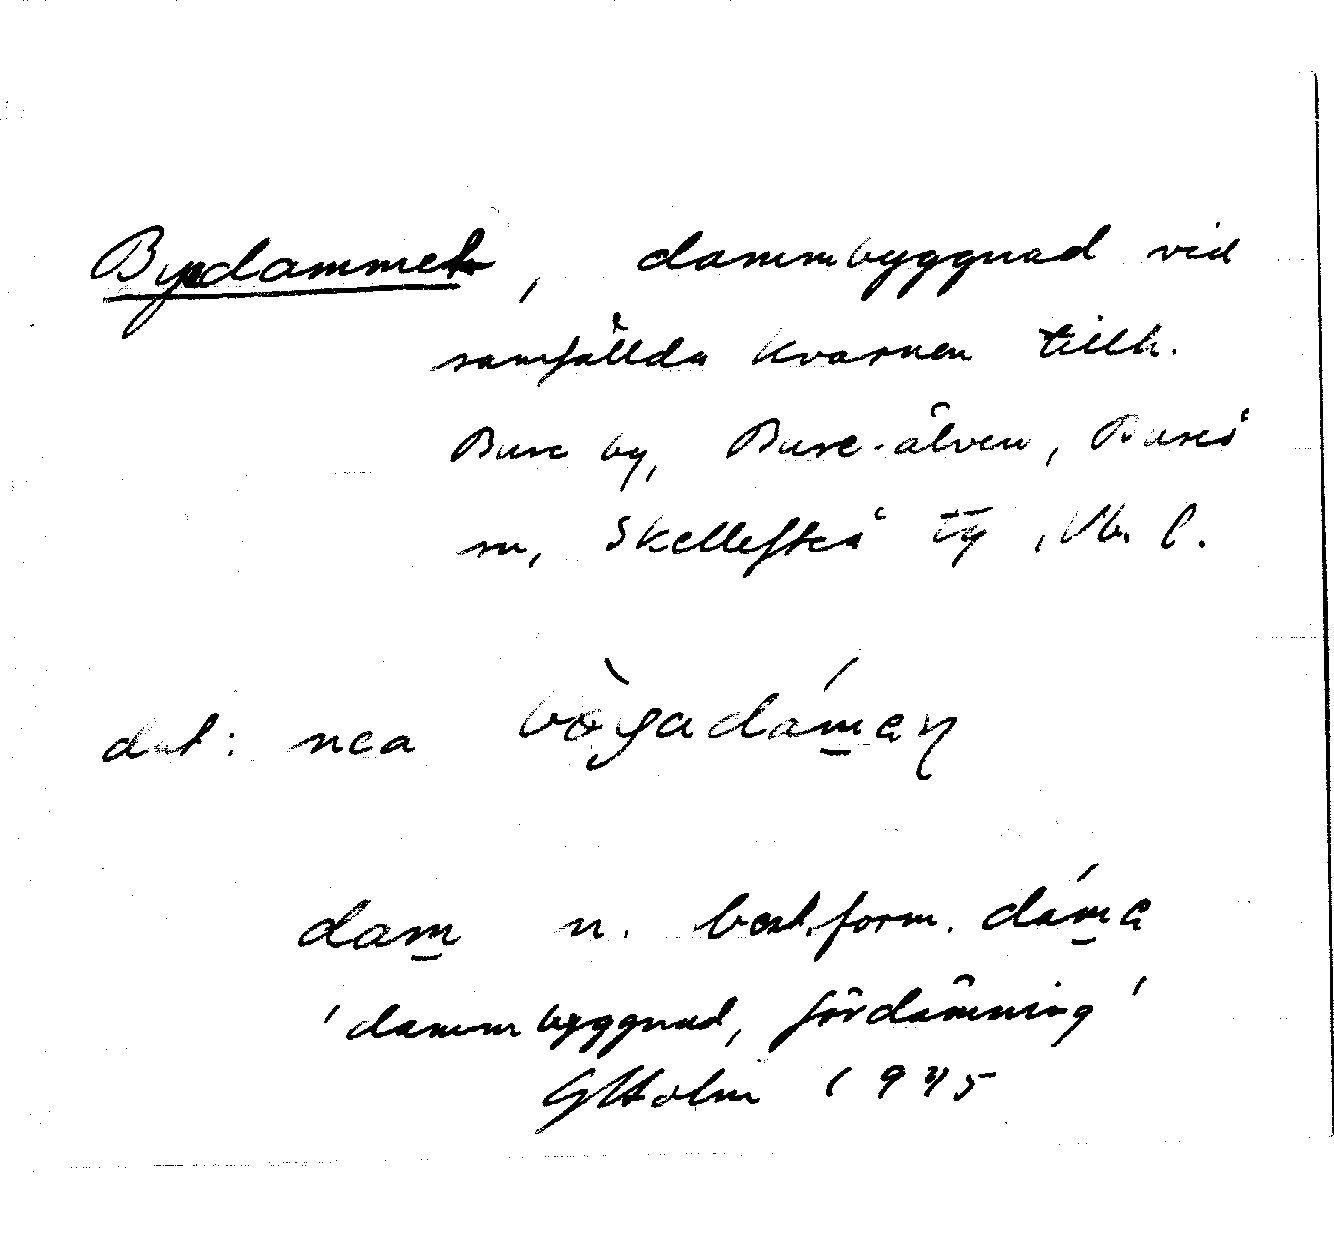 Bydammet, dammbyggnad vid
samfällda kvarnen tillh.
Bure by, Bure-älven, Bureå
sn, Skellefteå tg, Vb. l.
dat: nea
dam̲ n. best. form. dám̲e
'dammbyggnad, fördämning'
G Holm 1945